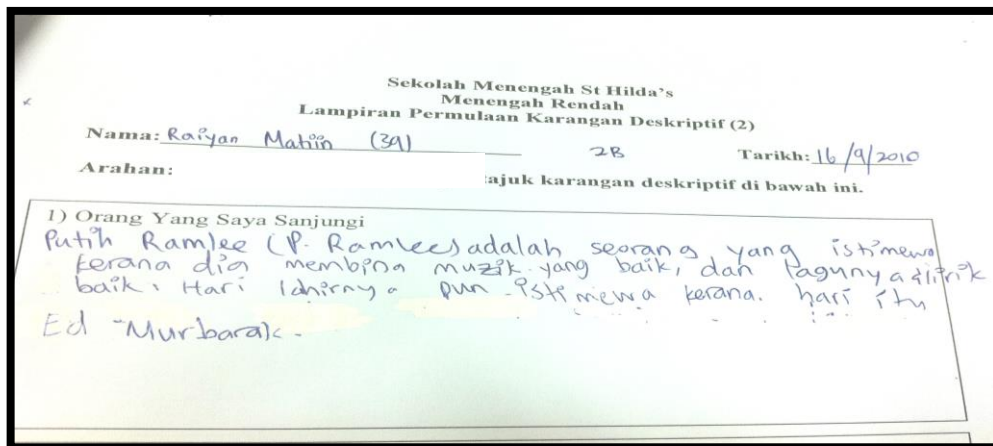 Sekolah Menengah St Hilda's
Menengah Rendah
Lampiran Permulaan Karangan Deskriptif (2)
Nama: Raiyan Matiin (39) 2B Tarikh: 16/9/2010
Arahan:
ajuk karangan deskriptif di bawah ini.
1) Orang Yang Saya Sanjungi
Putih Ramlee (P. Ramlee) adalah seorang yang istimewa
kerana dia membina muzik yang baik, dan lagunya &lirik
baik. Hari lahirnya pun istimewa kerana. hari itu
Ed Murbarak.